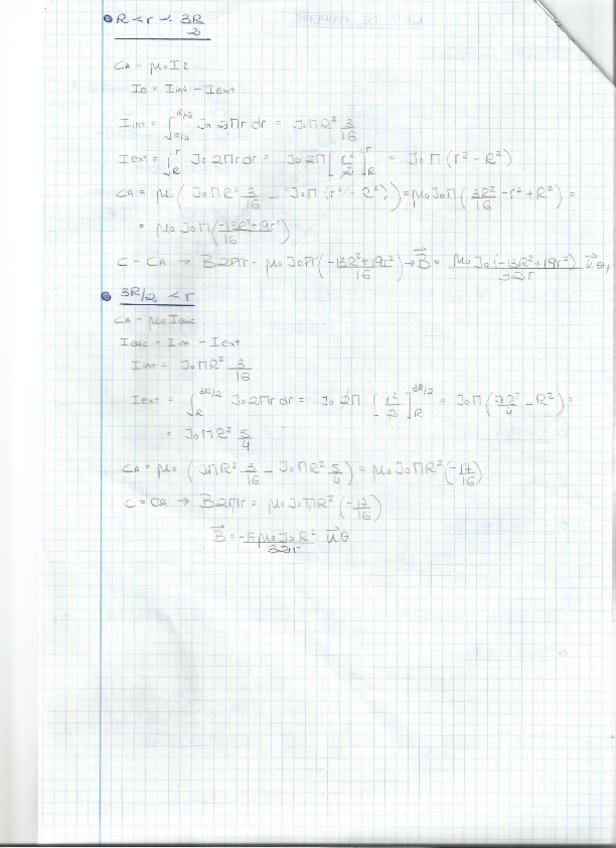 R < r < 3R/2
CA = μ₀ I e
Ie = Iint - Iext
Iint = ∫_{R/4}^{R/2} J₀ 2πr dr = J₀πR² 3/16
Iext = ∫_R^r J₀ 2πr dr = J₀ 2π [r²/2]_R^r = J₀π(r² - R²)
CA = μ₀(J₀πR² 3/16 - J₀π(r² - R²)) = μ₀J₀π(3R²/16 - r² + R²) =
= μ₀J₀π(-13R²+19r²/16)
C = CA → B2πr = μ₀J₀π(-13R²+19r²/16) → B⃗ = μ₀J₀(-13R²+19r²)/32r u⃗θ,
3R/2 < r
CA = μ₀ Ienc
Ienc = Iint - Iext
Iint = J₀πR² 3/16
Iext = ∫_R^{3R/2} J₀2πr dr = J₀ 2π [r²/2]_R^{3R/2} = J₀π( R²/4 - R²) =
= J₀πR² 5/4
CA = μ₀ (JπR² 3/16 - J₀πR² 5/4) = μ₀J₀πR² (-17/16)
C = CA → B2πr = μ₀J₀πR² (-17/16)
B⃗ = - μ₀J₀R²/32r u⃗θ